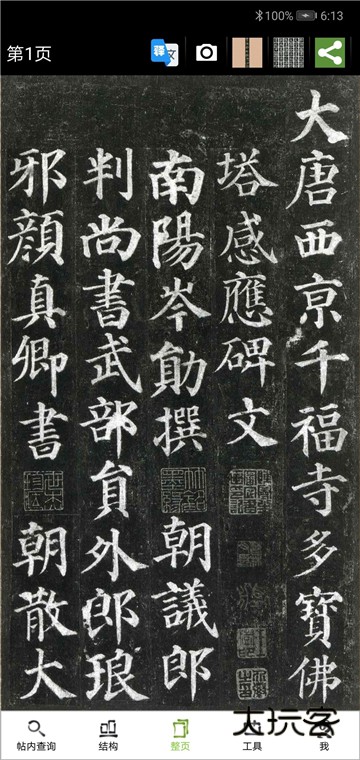 100% 6:13
第1页
释 文
大唐西京千福寺多寶佛
塔感應碑文
南陽岑勛撰 朝議郎
判尚書武部員外郎琅
邪顏真卿書 朝散大
大玩家
帖内查询 结构 整页 工具 我